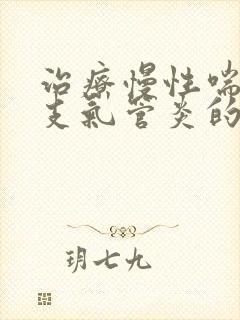 治療慢性喘
支氣管炎的
玥七九